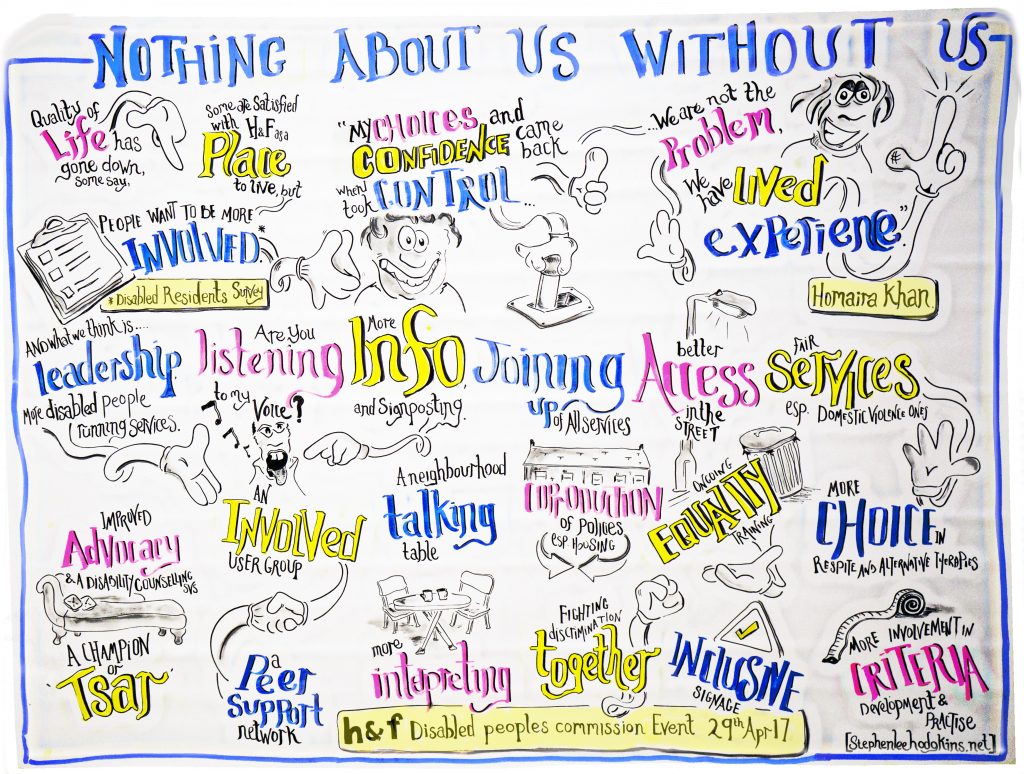 NOTHING ABOUT US WITHOUT US
Quality of
Life has
gone down,
some say,
Some are satisfied
with H&F as a
Place
to live, but
PEOPLE WANT TO BE MORE
INVOLVED.*
*Disabled Residents Survey
"MY CHOICES and
CONFIDENCE came
back
when
took CONTROL...
...We are not the
Problem,
We
have LIVED
experience."
Homaira Khan
AND what we think is....
leadership.
More disabled people
running services.
Are You
listening
to my Voice?
More
Info,
and Signposting.
Joining
up of All services
better
Access
in the
STREET
FAIR
SERVICES
esp. DOMESTIC VIOLENCE ONES
IMPROVED
Advocacy
& A DISABILITY COUNSELLING
SVS
AN
INVOLVED
USER GROUP
A neighbourhood
talking
table
COPRODUCTION
of policies
esp. HOUSING
ONGOING
EQUALITY
TRAINING
MORE
CHOICE IN
RESPITE AND ALTERNATIVE THERAPIES
A CHAMPION
or
'Tsar'
a
Peer
Support
network
more
intepreting
FIGHTING
discrimination
together
INCLUSIVE
SIGNAGE
MORE INVOLVEMENT IN
CRITERIA
Development &
PRACTISE
h&f Disabled peoples commission Event 29th Apr 17
[stephenleehodgkins.net]